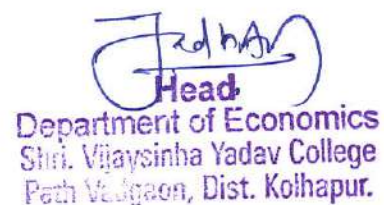 Head
Department of Economics
Shri. Vijaysinha Yadav College
Peth Vadgaon, Dist. Kolhapur.